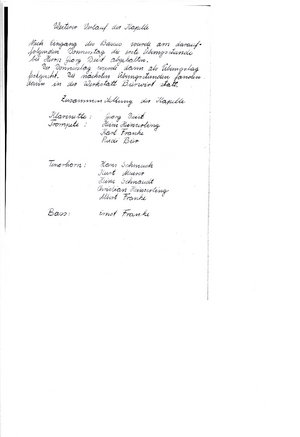 Weiterer Verlauf der Kapelle
Nach Eingang des Basses wurde am darauf-
folgenden Donnerstag die erste Übungsstunde
bei Georg abgehalten.
Der Donnerstag wurde dann als Übungstag
festgesetzt. Die nächsten Übungsstunden fanden
dann in der Werkstatt statt.
Zusammensetzung der Kapelle
Klarinette: Georg
Trompete: Heini
Karl Franke
Tenorhorn: Hans
Kurt
Heinz Schmidt
Christian
Albert Franke
Bass: Ernst Franke